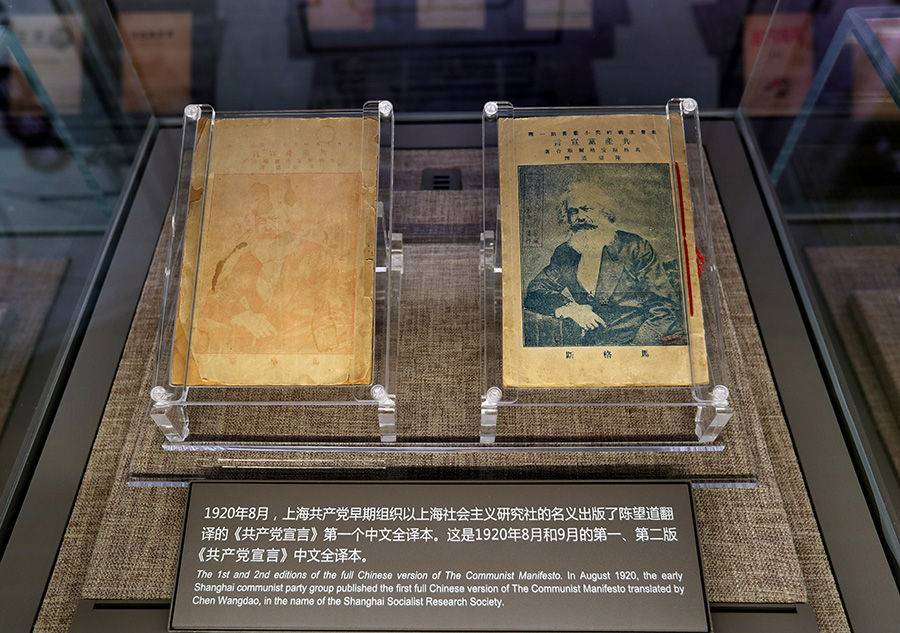 社會主義研究小叢書第一種
共產黨宣言
馬格斯安格爾斯合著
陳望道譯
馬格斯
1920年8月，上海共产党早期组织以上海社会主义研究社的名义出版了陈望道翻
译的《共产党宣言》第一个中文全译本。这是1920年8月和9月的第一、第二版
《共产党宣言》中文全译本。
The 1st and 2nd editions of the full Chinese version of The Communist Manifesto. In August 1920, the early
Shanghai communist party group published the first full Chinese version of The Communist Manifesto translated by
Chen Wangdao, in the name of the Shanghai Socialist Research Society.